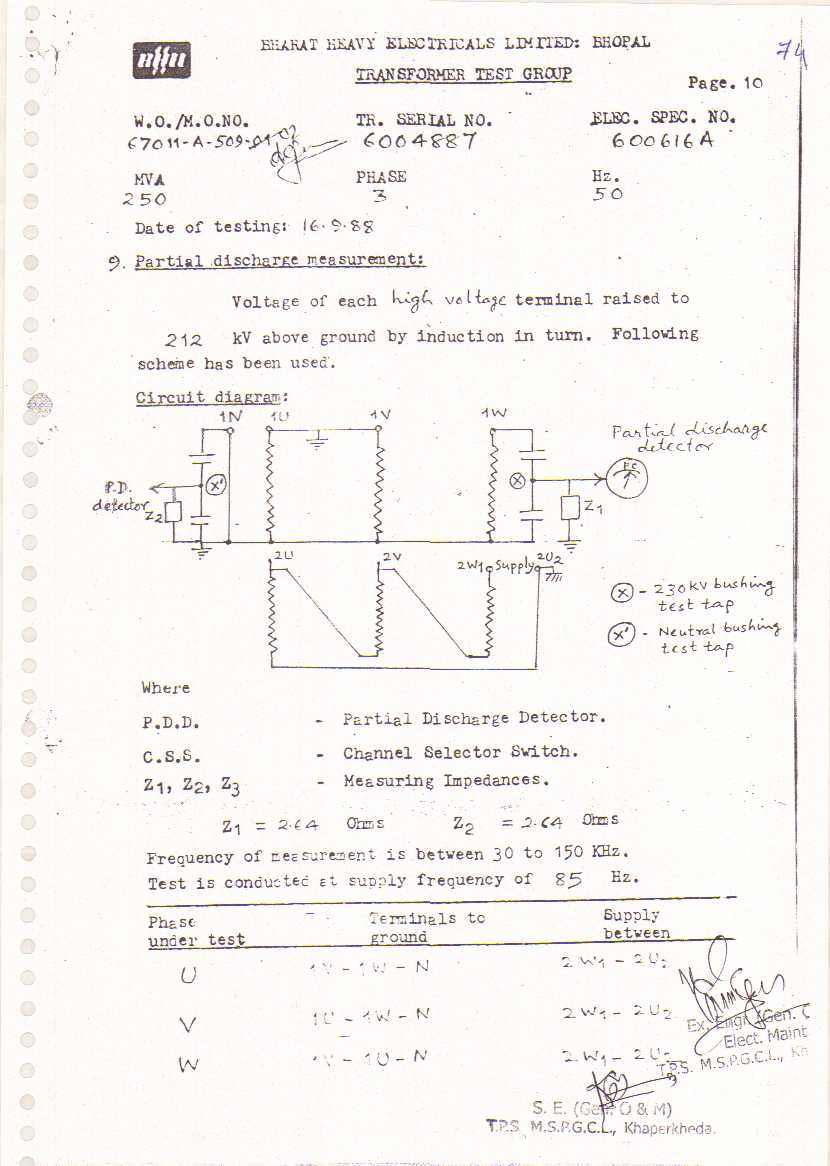 BHARAT HEAVY ELECTRICALS LIMITED: BHOPAL
74
TRANSFORMER TEST GROUP
Page. 10
W.O./M.O.NO. TR. SERIAL NO. ELEC. SPEC. NO.
67011-A-509-01 02 6004887 600616A
MVA PHASE Hz.
250 3 50
Date of testing: 16.9.88
9. Partial discharge measurement:
Voltage of each high voltage terminal raised to
212 kV above ground by induction in turn. Following
scheme has been used.
Circuit diagram:
1N 1U 1V 1W
Partial discharge
detector
P.D.
detector
Z2
X'
X
Z1
2U 2V 2W1 Supply 2U2
X - 230 KV bushing
test tap
X' - Neutral bushing
test tap
Where
P.D.D. - Partial Discharge Detector.
C.S.S. - Channel Selector Switch.
Z1, Z2, Z3 - Measuring Impedances.
Z1 = 2.64 Ohms Z2 = 2.64 Ohms
Frequency of measurement is between 30 to 150 KHz.
Test is conducted at supply frequency of 85 Hz.
Phase Terminals to Supply
under test ground between
U 1V - 1W - N 2W1 - 2U2
V 1U - 1W - N 2W1 - 2U2
W 1V - 1U - N 2W1 - 2U2
Ex. Engr. (Gen.
Elect. Maint
T.P.S. M.S.P.G.C.L., Kh
S. E. (Gen. O & M)
T.P.S. M.S.P.G.C.L., Khaperkheda.